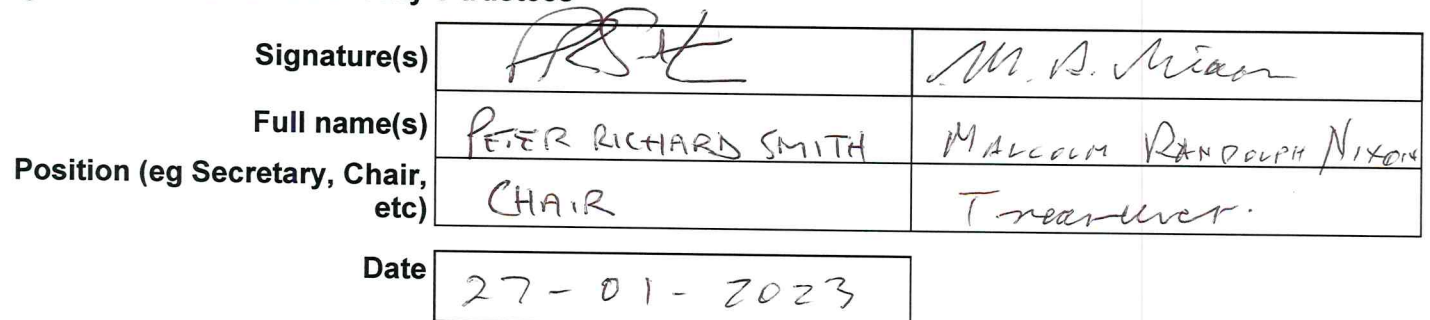 Signature(s) M. R. Nixon
Full name(s) PETER RICHARD SMITH MALCOLM RANDOLPH NIXON
Position (eg Secretary, Chair,
etc) CHAIR Treasurer.
Date 27-01-2023